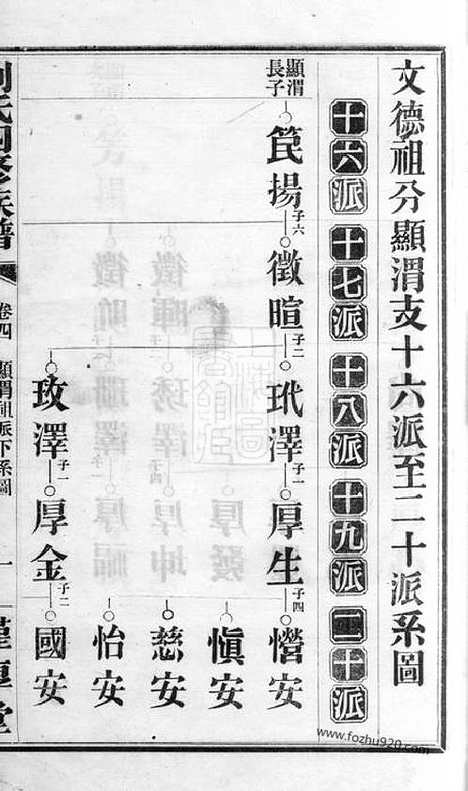 文德祖分顯渭支十六派至二十派系圖
十六派 十七派 十八派 十九派 二十派
顯渭長子
筤揚 子六
徵暄 子二
玳澤 子一
厚生 子四
憕安
慎安
慈安
怡安
玫澤 子一
厚金 子二
國安
劉氏四修族譜 卷四 顯渭祖派下系圖 一
www.fozhu920.com